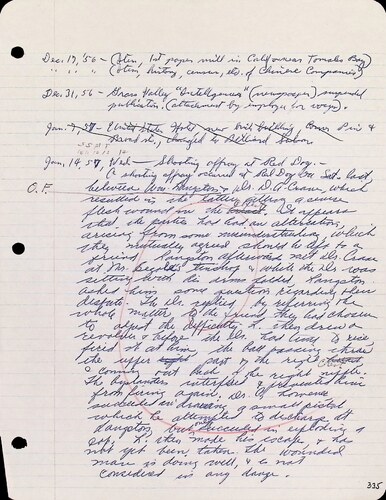 Dec. 17, '56 – (Item, 1st paper mill in California near Tomales Bay)
" " " " – (Item, history, census, etc. of Chinese Companies)
Dec. 31, 56 – Grass Valley "Intelligencer" (newspaper) suspended
publication. (attachment by employees for wages).
Jan. 7, 57 – United States Hotel, new brick building Corner Pine &
Broad St., changed to
Jan. 14, 57, Wed – Shooting affray at Red Dog. –
O.F. (A shooting affray occurred at Red Dog on Sat. last
between Wm. Langston & Dr. A. Crane which
resulted in the latter getting a severe
flesh wound in the It appears
that the parties had had an altercation,
arising from some misunderstanding which
they mutually agreed should be left to a
friend. Langston afterwards met Dr. Crane
at building & while the Dr. was
sitting with his arms folded, Langston
asked him some question regarding their
dispute. The Dr. replied by referring the
whole matter to the friend they had chosen
to adjust the difficulty. L. then drew a
revolver & before the Dr. had time to rise
fired at him, the ball passing thro
the upper part of the right breast
& coming out back of the right nipple.
The bystanders interfered & prevented him
from firing again. Dr. C. however
succeeded in drawing a small pistol
which he attempted to discharge at
Langston, but only succeeded in exploding a
cap. L. then made his escape, & has
not yet been taken. The wounded
man is doing well, & is not
considered in any danger.
335